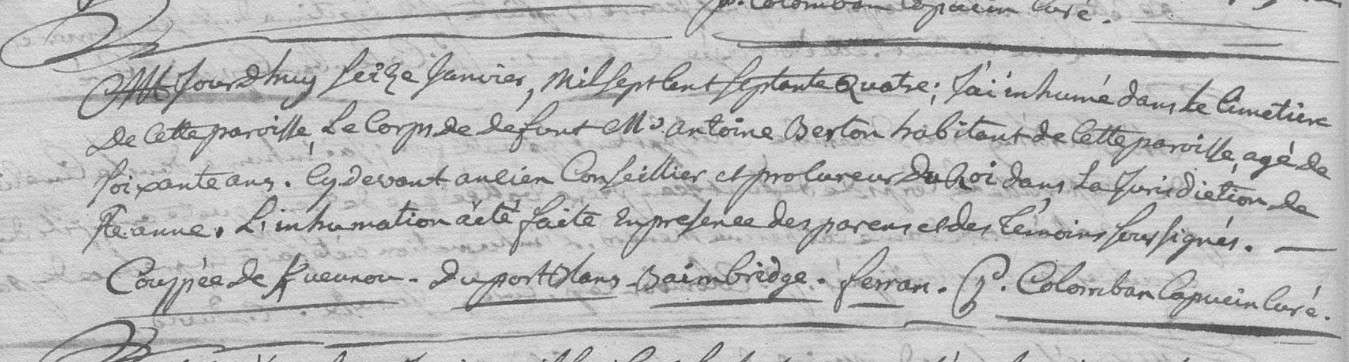 P. Colomban Capucin Curé.
Aujourdhuy seize Janvier, Mil sept cent septante quatre; J'ai inhumé dans Le Cimetiere
de Cette paroisse, Le Corps de defunt Mr. antoine Berton habitant de Cette paroisse, agé de
soixante ans. Cy devant ancien Conseillier et procureur du Roi dans La Jurisdiction de
Ste anne. L'inhumation a été faite En presence des parens et des témoins soussignés.
Couppée de Kvennou. duport Blanc. Baimbridge. ferran. P. Colomban Capucin Curé.